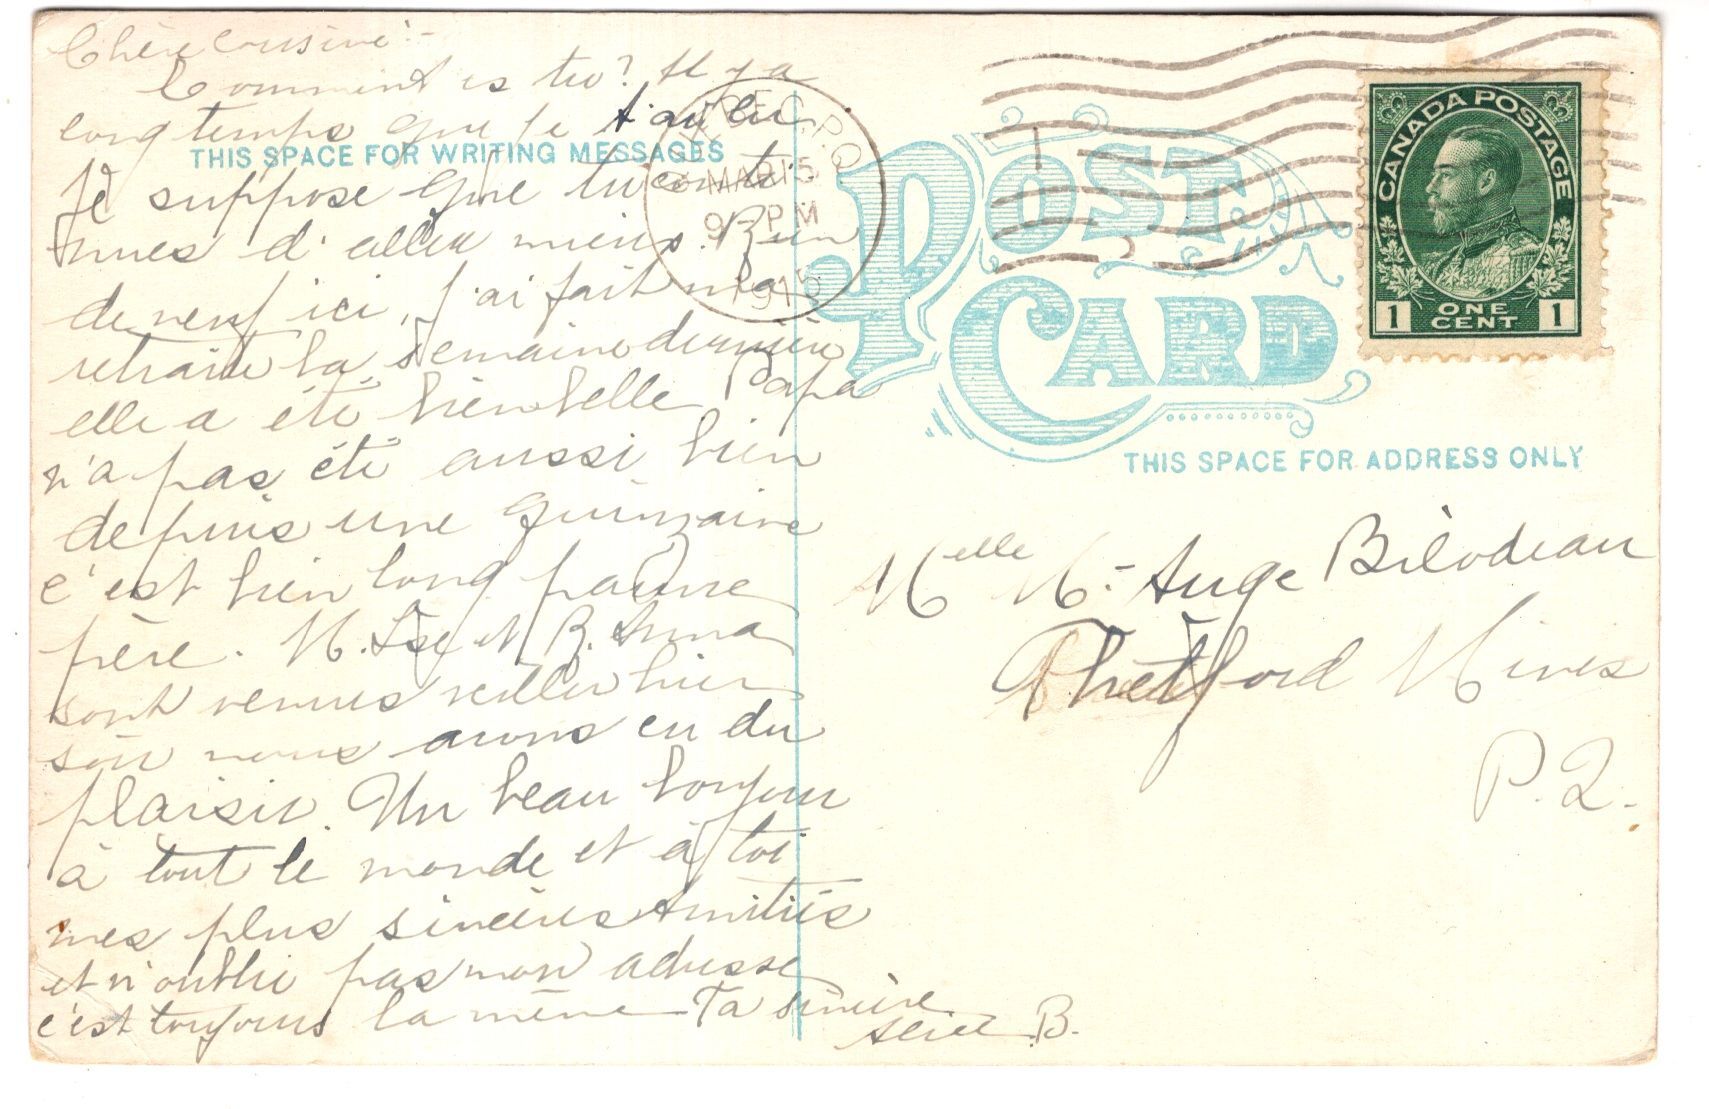 Chère cousine:-
Comment es tu? Il y a
longtemps que je t'ai lu
THIS SPACE FOR WRITING MESSAGES
Je suppose que tu conti
nues d'aller mieux. Rien
de neuf ici, j'ai fait ma
retraite la semaine dernière
elle a été bien belle Papa
n'a pas été aussi bien
depuis une quinzaine
c'est bien long pauvre
père. M. et B. Anna
sont venues veiller hier
soir nous avons eu du
plaisir. Un beau bonjour
à tout le monde et à toi
mes plus sincères Amitiés
et n'oublie pas mon adresse
c'est toujours la même Ta sincère
B.
QUEBEC. P.Q.
MAR 15
9 PM
1915
POST CARD
CANADA POSTAGE
1 ONE CENT 1
THIS SPACE FOR ADDRESS ONLY
Melle M.-Ange Bilodeau
Thetford Mines
P.Q.